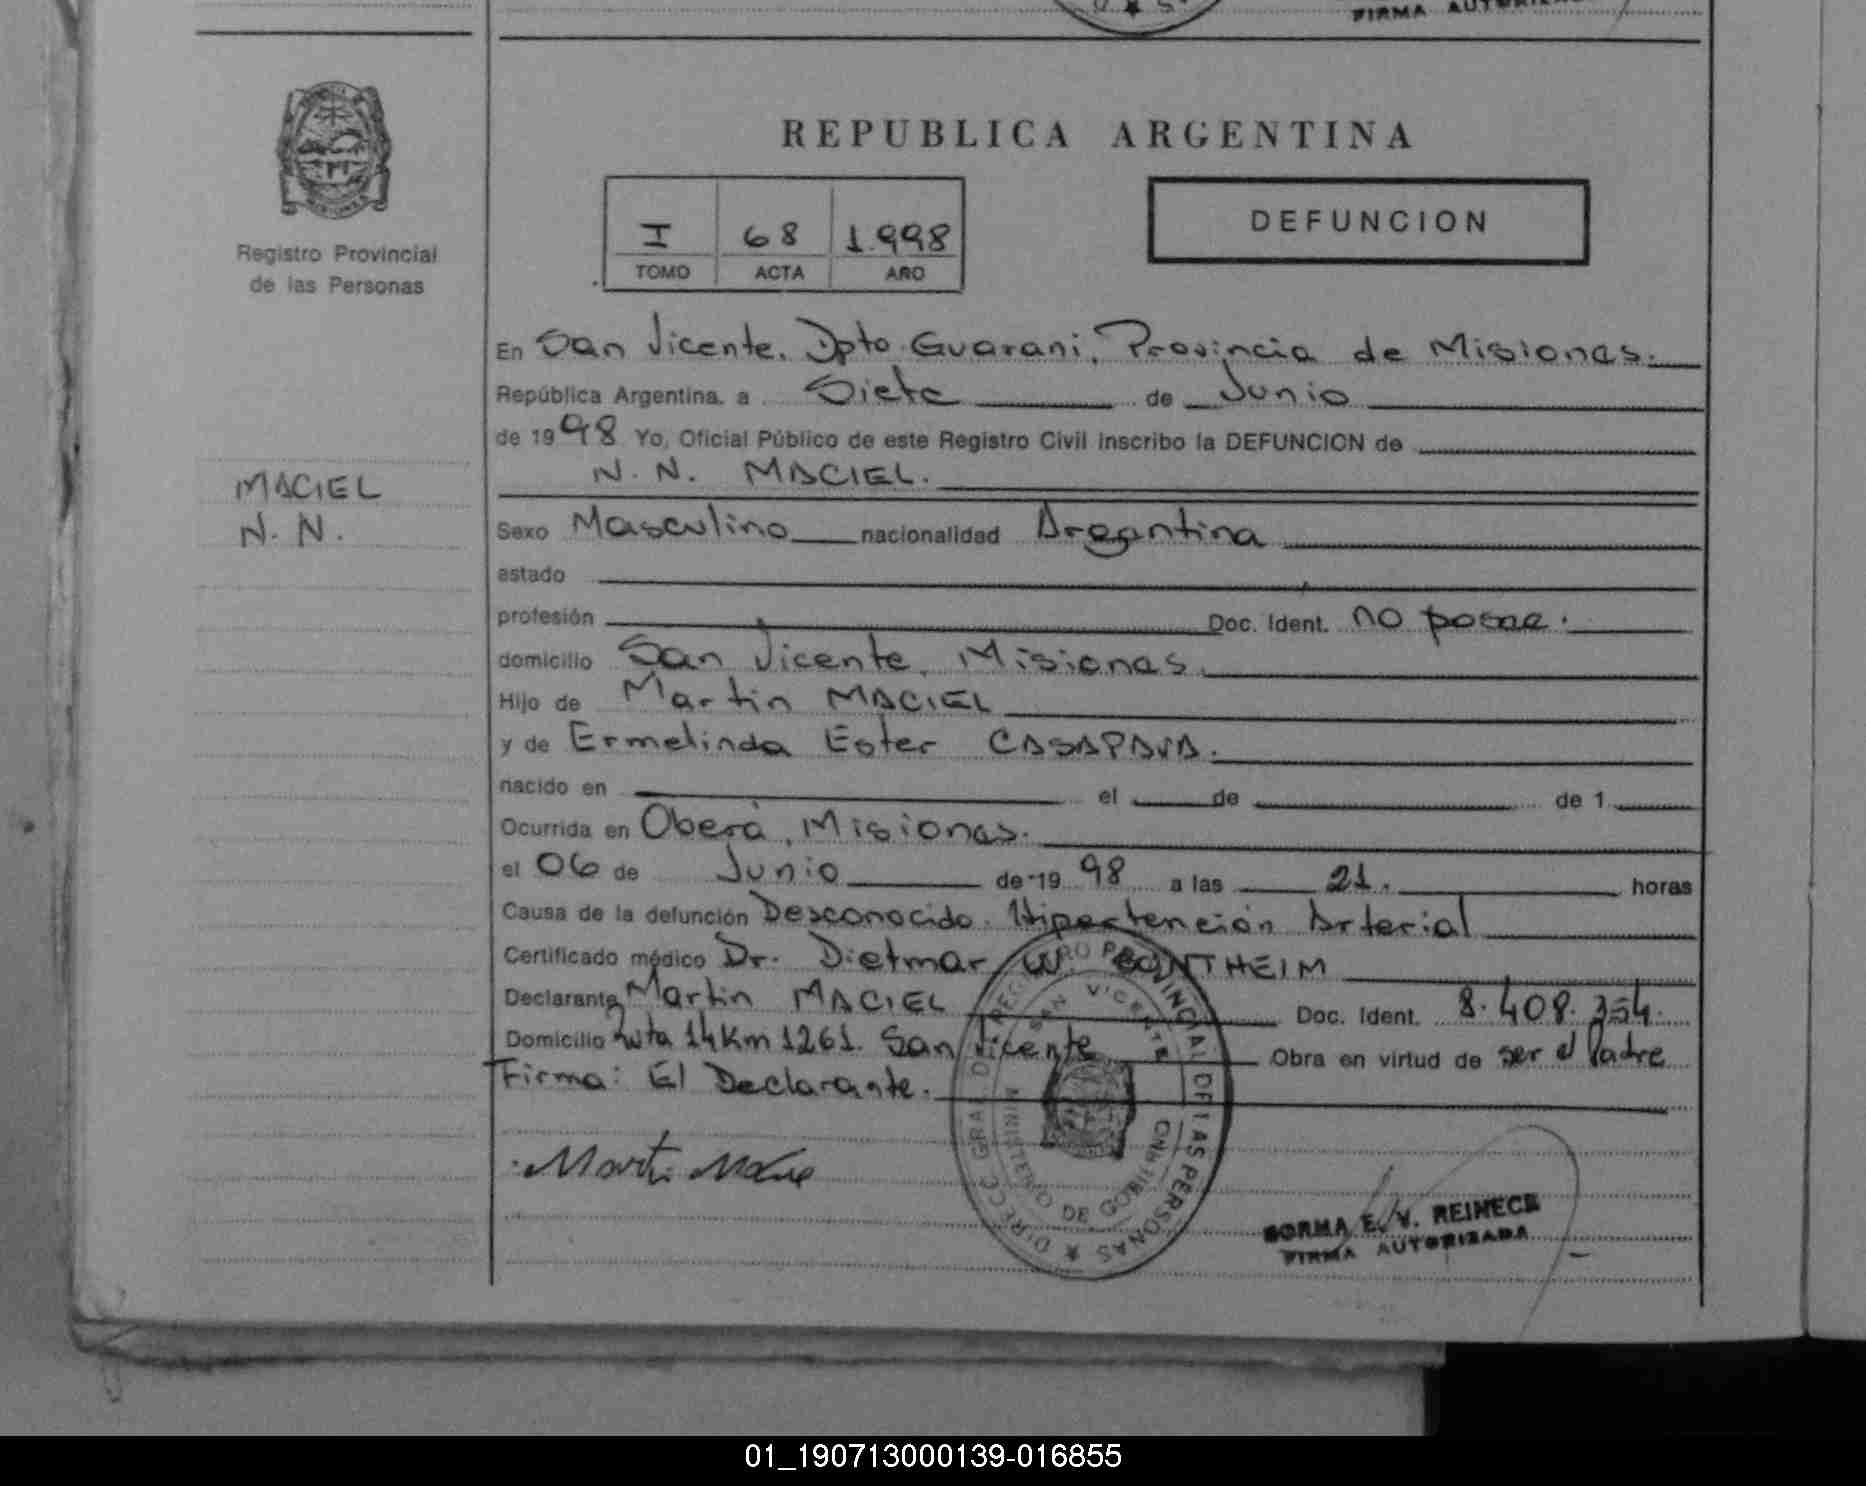 FIRMA AUTORIZADA
REPUBLICA ARGENTINA
I 68 1.998
TOMO ACTA AÑO
DEFUNCION
Registro Provincial
de las Personas
MACIEL
N. N.
En San Vicente, Dpto Guarani, Provincia de Misiones.
República Argentina, a Siete de Junio
de 1998 Yo, Oficial Público de este Registro Civil inscribo la DEFUNCION de
N. N. MACIEL.
Sexo Masculino nacionalidad Argentina
estado
profesión Doc. Ident. no posee.
domicilio San Vicente, Misiones.
Hijo de Martin MACIEL
y de Ermelinda Ester CASAPAVA.
nacido en el de de 1
Ocurrida en Oberá, Misiones.
el 06 de Junio de 19 98 a las 21. horas
Causa de la defunción Desconocido. Hipertención Arterial
Certificado médico Dr. Dietmar W. THEIM
Declarante Martin MACIEL Doc. Ident. 8.408.354.
Domicilio Ruta 14 Km 1261. San Vicente Obra en virtud de ser el Padre
Firma: El Declarante.
DIRECC. GRAL. DEL REGISTRO PROVINCIAL DE LAS PERSONAS
SAN VICENTE
MINISTERIO DE GOBIERNO
NORMA E. V. REINECK
FIRMA AUTORIZADA
01_190713000139-016855